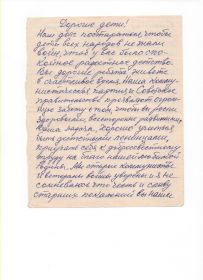 Дорогие дети!
Наш долг постараться, чтобы
дети всех народов не знали
войны, чтоб у вас было спо-
койное радостное детство.
Вы дорогие ребята живете
в счастливое время. Наша Комму-
нистическая партия и Советское
правительство проявляют огром-
ную заботу о том, чтобы вы росли
здоровыми, всесторонне развитыми,
Ваша задача, хорошо учиться
быть достойными ленинцами,
приучать себя к добросовестному
труду на благо нашей любимой
Родины. Мы старые коммунисты
и ветераны войны уверены и не
сомневаемся что честь и славу
старших поколений вы